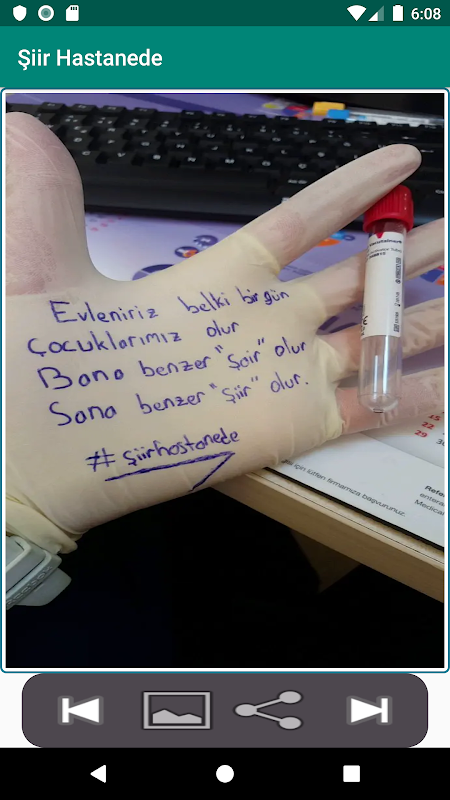 6:08
Şiir Hastanede
Evleniriz belki bir gün
Çocuklarımız olur
Bana benzer "Şair" olur
Sana benzer "Şiir" olur.
#şiirhastanede
15
22
29
için lütfen firmamıza başvurunuz.